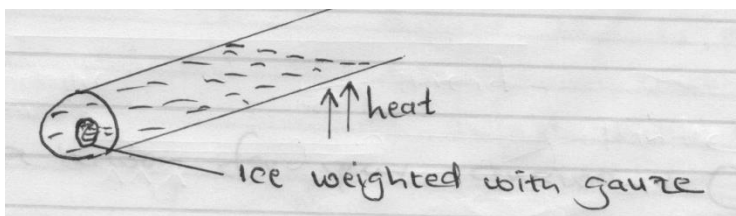 heat
Ice weighted with gauze